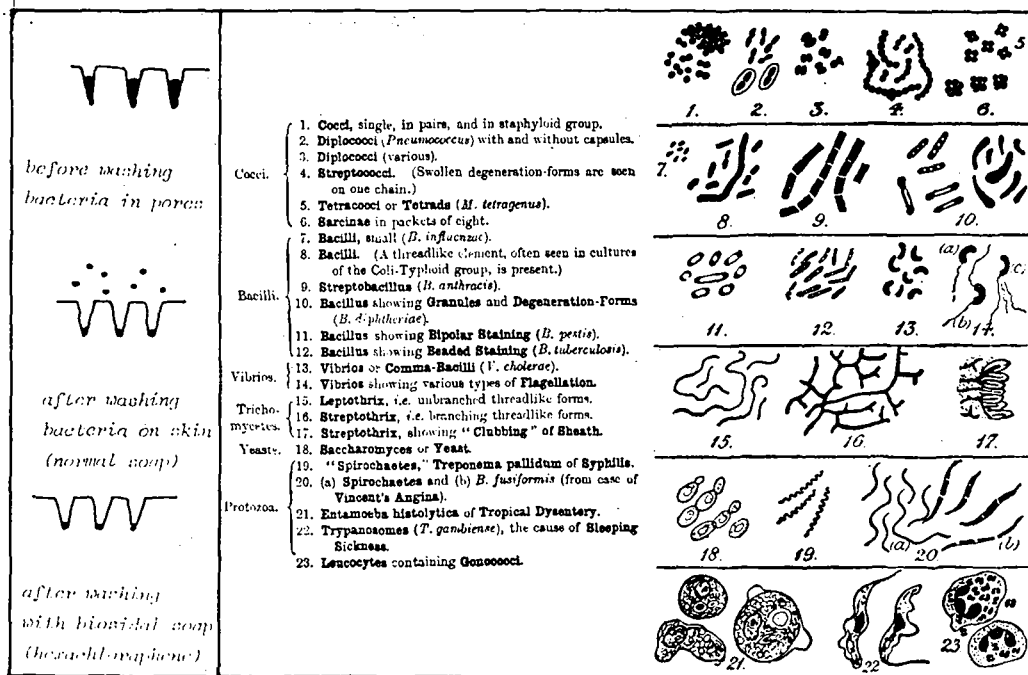 before washing
bacteria in pores
after washing
bacteria on skin
(normal soap)
after washing
with biocidal soap
(hexachlorophene)
Cocci.
1. Cocci, single, in pairs, and in staphyloid group.
2. Diplococci (Pneumococcus) with and without capsules.
3. Diplococci (various).
4. Streptococci. (Swollen degeneration-forms are seen
on one chain.)
5. Tetracocci or Tetrads (M. tetragenus).
6. Sarcinae in packets of eight.
Bacilli.
7. Bacilli, small (B. influenzae).
8. Bacilli. (A threadlike element, often seen in cultures
of the Coli-Typhoid group, is present.)
9. Streptobacillus (B. anthracis).
10. Bacillus showing Granules and Degeneration-Forms
(B. diphtheriae).
11. Bacillus showing Bipolar Staining (B. pestis).
12. Bacillus showing Beaded Staining (B. tuberculosis).
Vibrios.
13. Vibrios or Comma-Bacilli (V. cholerae).
14. Vibrios showing various types of Flagellation.
Tricho-
mycetes.
15. Leptothrix, i.e. unbranched threadlike forms.
16. Streptothrix, i.e. branching threadlike forms.
17. Streptothrix, showing "Clubbing" of Sheath.
Yeasts.
18. Saccharomyces or Yeast.
Protozoa.
19. "Spirochaetes," Treponema pallidum of Syphilis.
20. (a) Spirochaetes and (b) B. fusiformis (from case of
Vincent's Angina).
21. Entamoeba histolytica of Tropical Dysentery.
22. Trypanosomes (T. gambiense), the cause of Sleeping
Sickness.
23. Leucocytes containing Gonococci.
5
1. 2. 3. 4. 6.
7.
8. 9. 10.
(a) (c)
(b)
11. 12. 13. 14.
15. 16. 17.
(a) (b)
18. 19. 20
23
21. 22